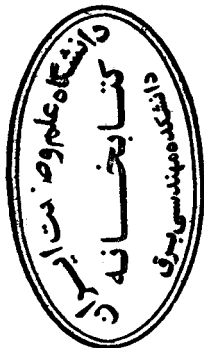 دانشگاه علم و صنعت ایران
کتابخانه
دانشکده مهندسی برق